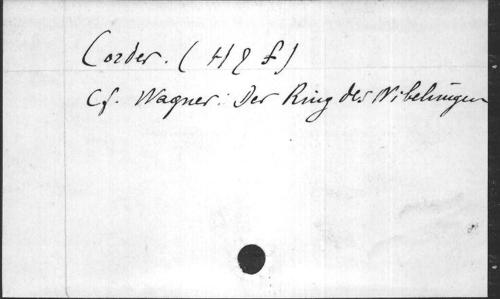 Corder. (H & F)
Cf. Wagner: Der Ring des Nibelungen